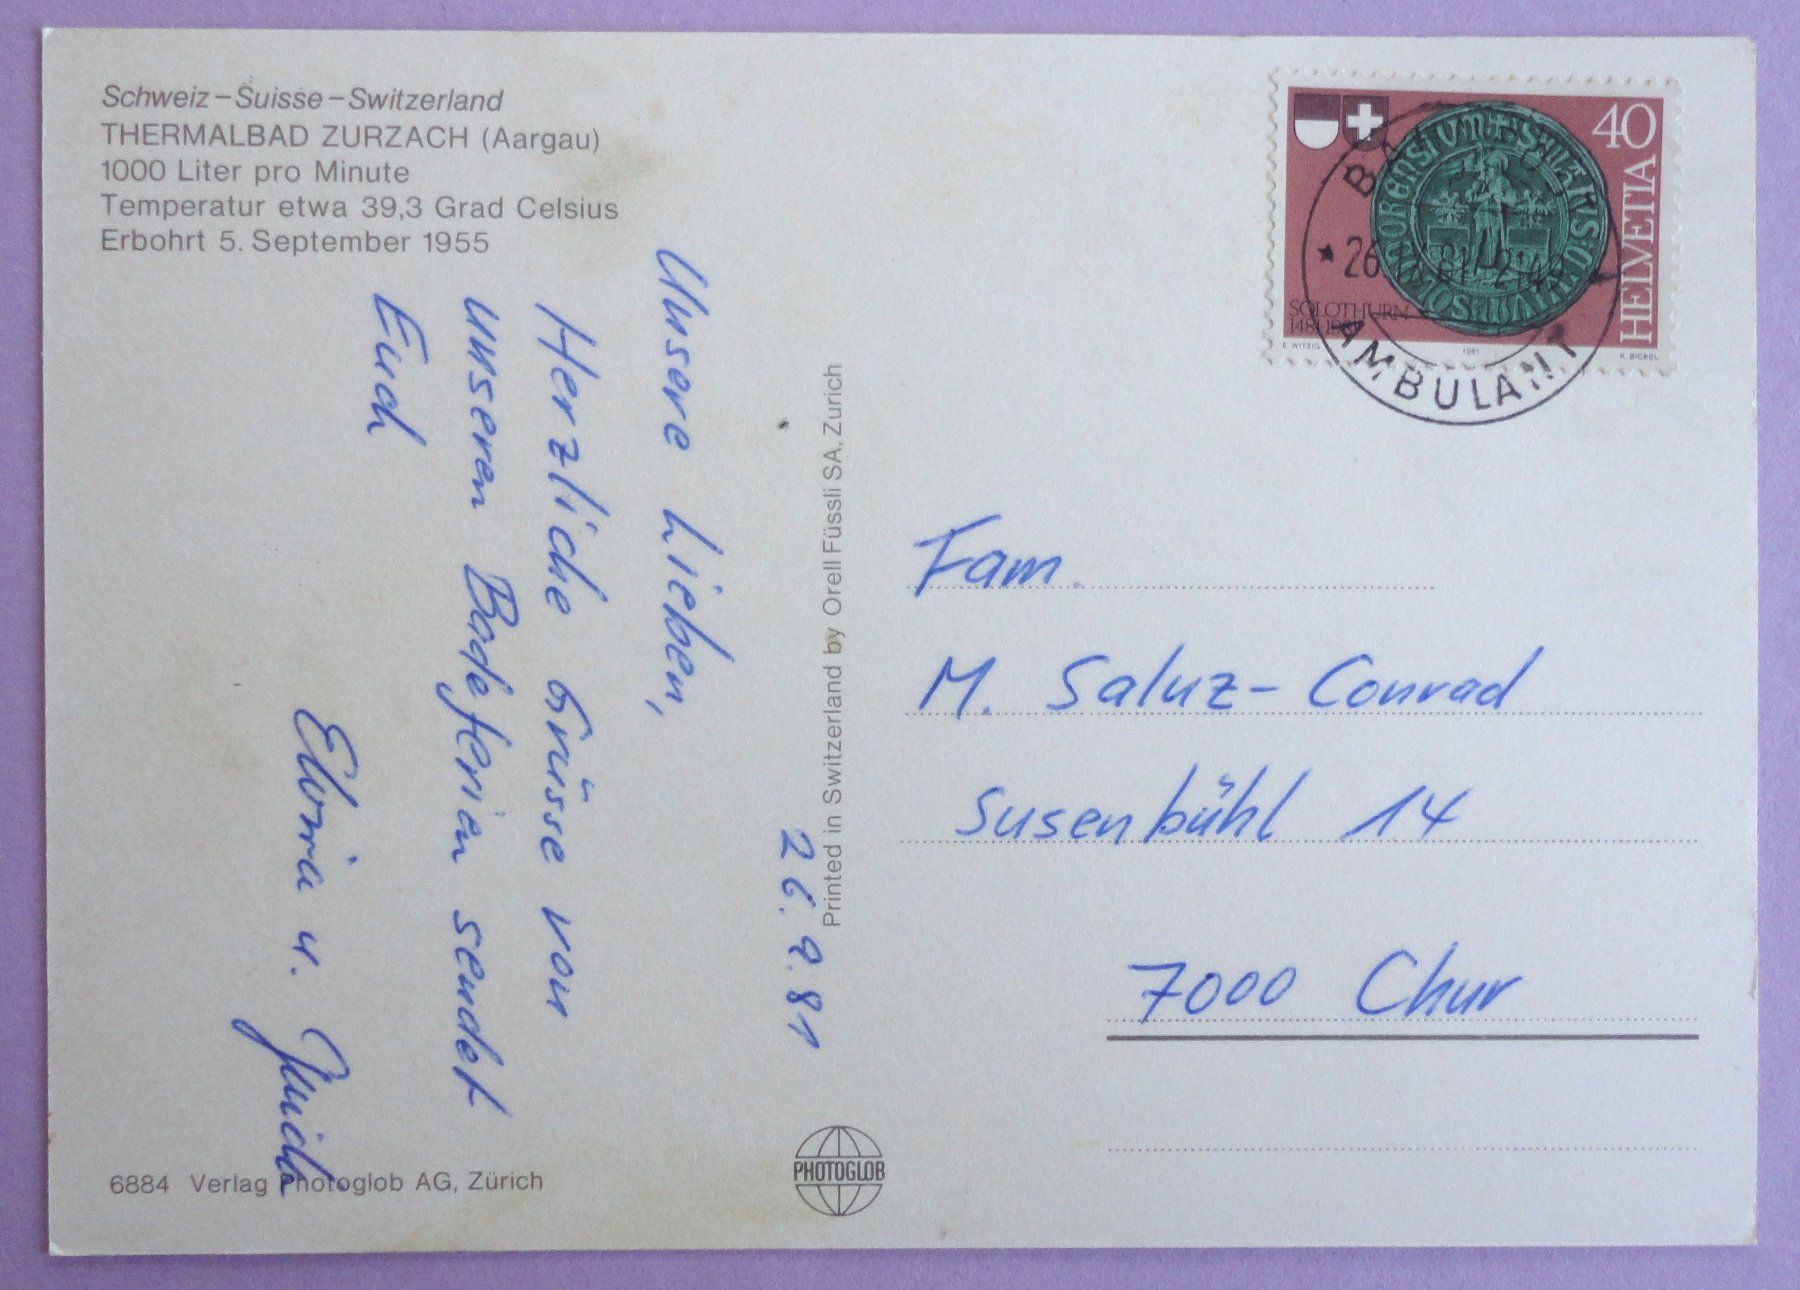 Schweiz – Suisse – Switzerland
THERMALBAD ZURZACH (Aargau)
1000 Liter pro Minute
Temperatur etwa 39,3 Grad Celsius
Erbohrt 5. September 1955
26.9.81
Unsere Lieben,
Herzliche Grüsse von
unseren Badeferien sendet
Euch
Elvira u. Guido
Printed in Switzerland by Orell Füssli SA, Zurich
6884 Verlag Photoglob AG, Zürich
PHOTOGLOB
40
HELVETIA
SOLOTHURN
E. WITZIG
1981
K. BICKEL
AMBULANT
Fam.
M. Saluz-Conrad
Susenbühl 14
7000 Chur